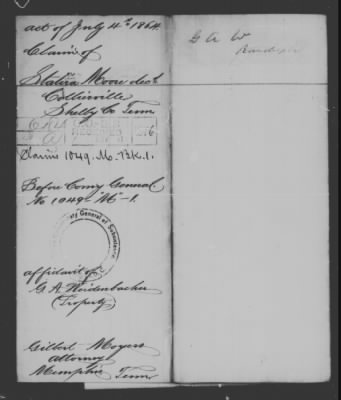 act of July 4th 1864.
Claim of
Statira Moore decd
Collierville
Shelby Co Tenn
Claim 1049. M. Bk. 1.
Before Comy General.
No 1049 "M" - 1.
Commissary General of Subsistence
affidavit of
G. A. Weidenbacher
(Property)
Gilbert Moyers
attorney
Memphis Tenn
G A W